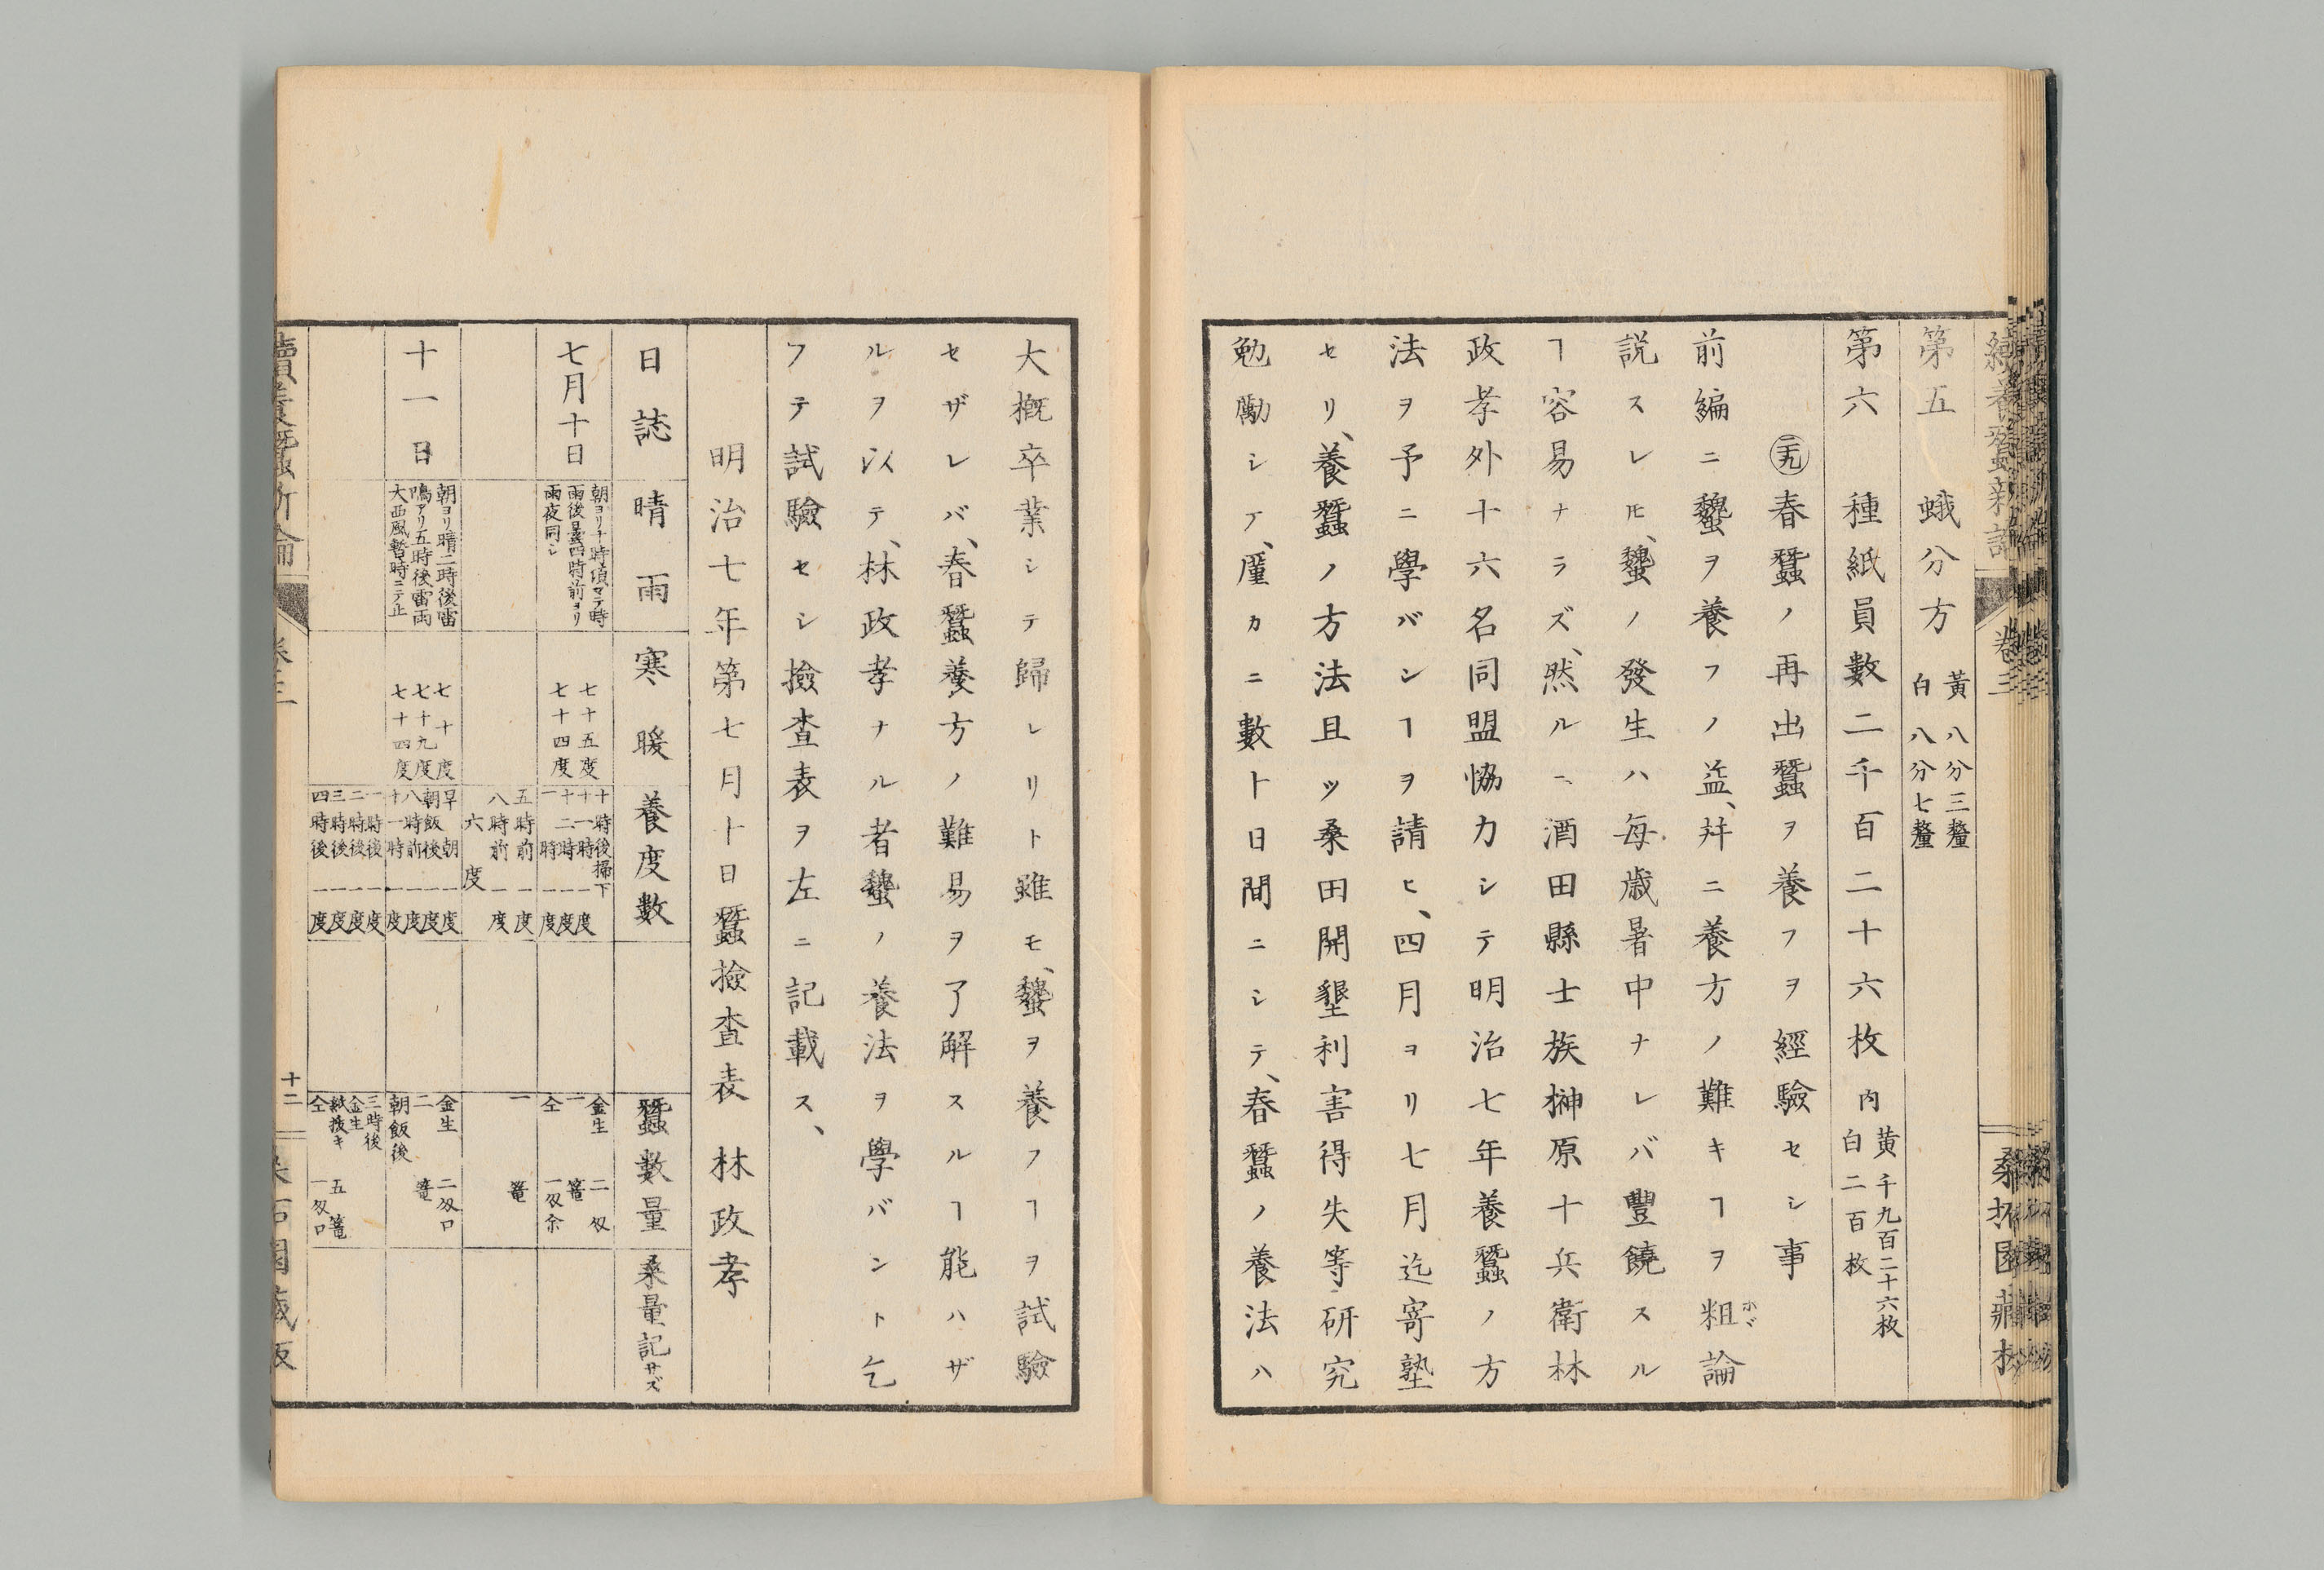 續養蠶新論
卷三
第五　蛾分方　黃八分三釐
白八分七釐
第六　種紙員數二千百二十六枚　内　黃千九百二十六枚
白二百枚
春蠶ノ再出蠶ヲ養フヲ經驗セシ事
前編ニ蠶ヲ養フノ益、幷ニ養方ノ難キヿヲ粗論
ホヾ
説スレ𪜈、ノ發生ハ每歳暑中ナレバ豐饒スル
ヿ容易ナラズ、然ルニ、酒田縣士族榊原十兵衛林
政孝外十六名同盟恊力シテ明治七年養蠶ノ方
法ヲ予ニ學バンヿヲ請ヒ、四月ヨリ七月迄寄塾
セリ、養蠶ノ方法且ツ桑田開墾利害得失等研究
勉勵シア、厪カニ數十日間ニシテ、春蠶ノ養法ハ
大概卒業シテ歸レリト雖モ、ヲ養フヿヲ試驗
セザレバ、春蠶養方ノ難易ヲ了解スルヿ能ハザ
ルヲ以テ、林政孝ナル者ノ養法ヲ學バント乞
フテ試驗セシ撿査表ヲ左ニ記載ス、
明治七年第七月十日蠶撿査表　林政孝
日誌　晴雨　寒暖　養度數　蠶數量　桑量記サズ
七月十日
朝ヨリ十時頃マテ時
雨後曇四時前ヨリ
雨夜同シ
七十五度
七十四度
十時後掃下
十一時　一度
十二時　一度
一時　一度
五時前　一度
八時前　一度
六度
十一日
朝ヨリ晴二時後雷
鳴アリ五時後雷雨
大西風暫時ニテ止
七十度
七十九度
七十四度
早朝　一度
朝飯後　一度
八時前　一度
十一時　一度
一時後　一度
二時後　一度
三時後　一度
四時後　一度
朝飯後
三時後
紙拔キ
十二